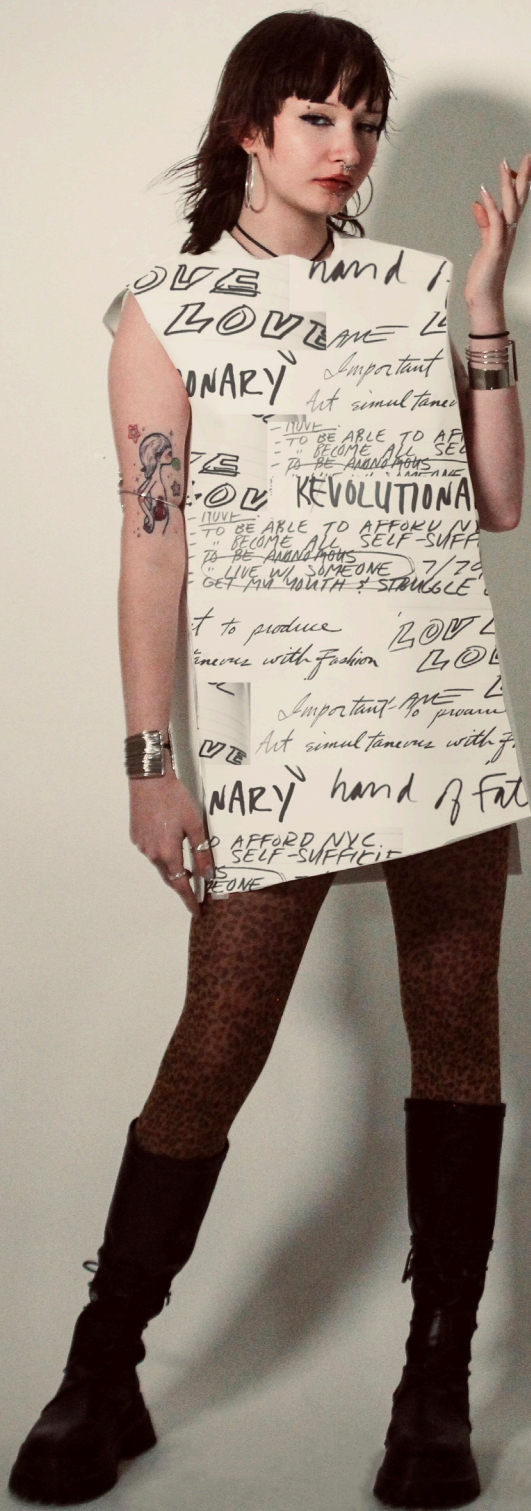 OVE
hand f
LOVE
ARE
L
ONARY
Important
Art simultaneo
- MOVE
- TO BE ABLE TO AFF
- " BECOME ALL SEL
- TO BE ANONOMOUS
VE
OV
REVOLUTIONA
- MOVE
- TO BE ABLE TO AFFORD NY
- " BECOME ALL SELF-SUFF
- TO BE ANONOMOUS
- " LIVE W/ SOMEONE 7/79
GET MY YOUTH & STRUGGLE
t to produce
LOVE
aneous with Fashion
LOV
Important
ARE
L
to produce
VE
Art simultaneous with F
NARY
hand of Fat
O AFFORD NYC
SELF-SUFFICIE
EONE